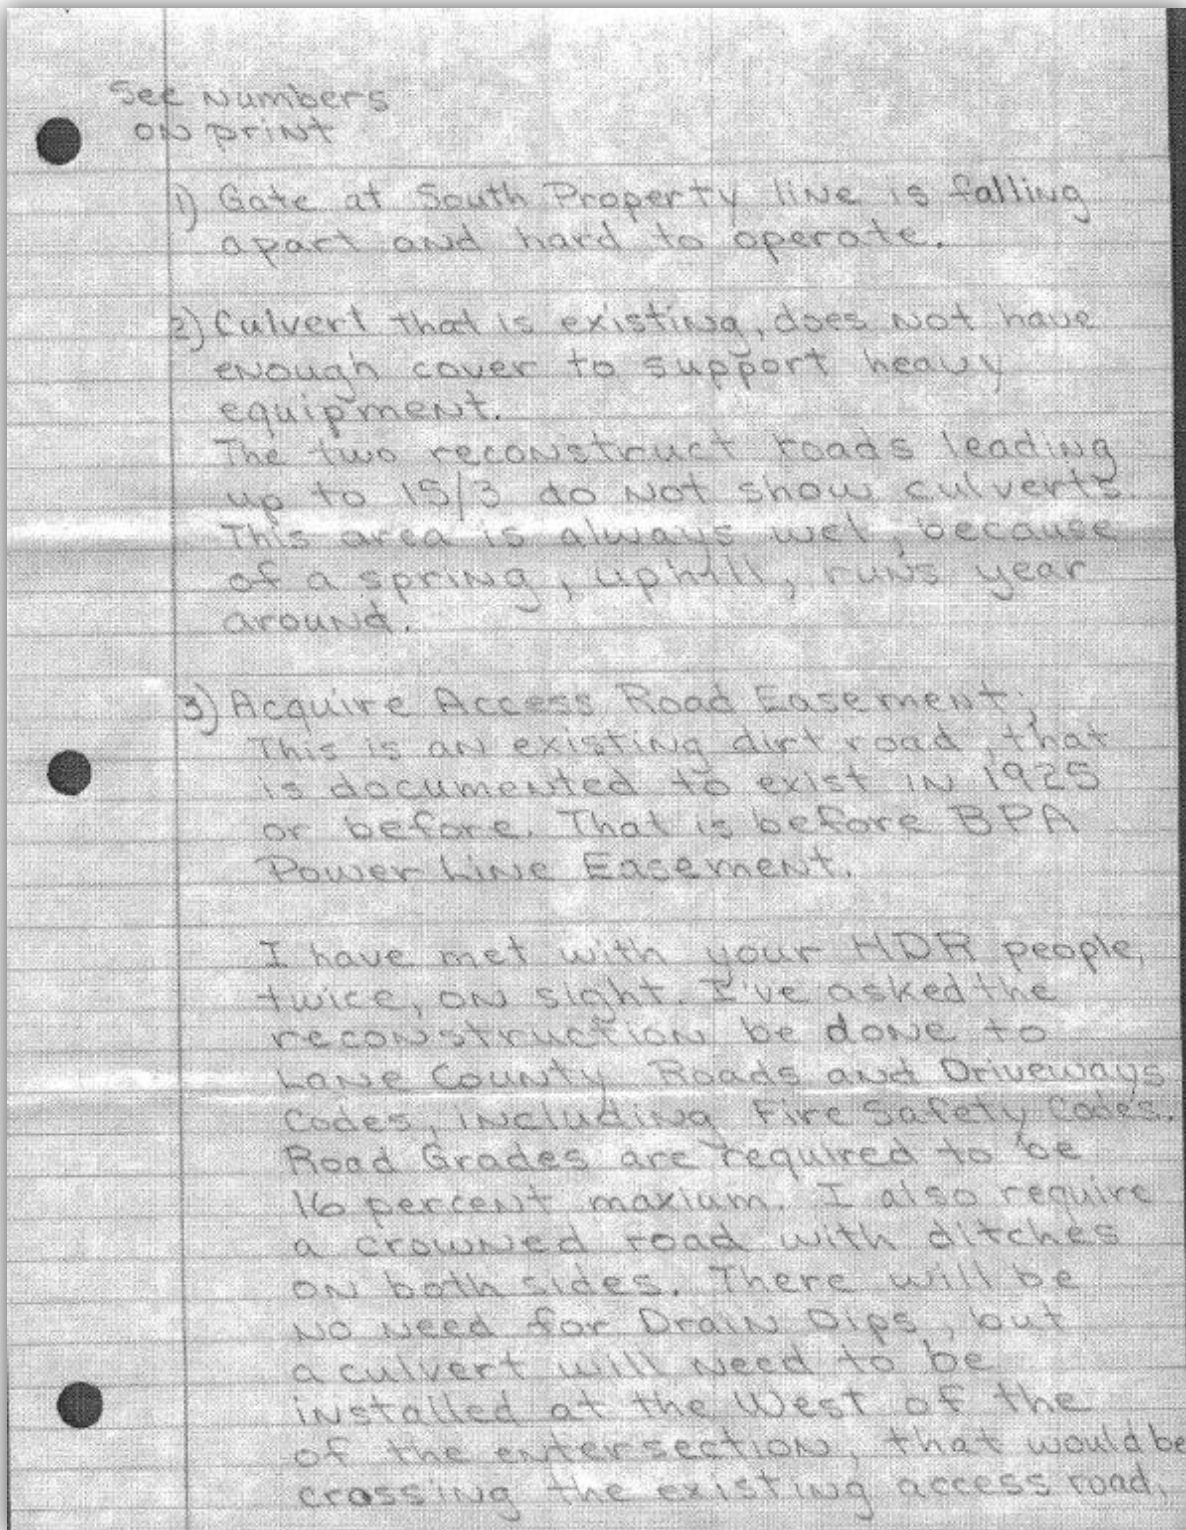 See Numbers
on print
1) Gate at South Property line is falling
apart and hard to operate.
2) Culvert that is existing, does not have
enough cover to support heavy
equipment.
The two reconstruct roads leading
up to 15/3 do not show culverts.
This area is always wet, because
of a spring, uphill, runs year
around.
3) Acquire Access Road Easement;
This is an existing dirt road, that
is documented to exist in 1925
or before. That is before BPA
Power Line Easement.
I have met with your HDR people,
twice, on sight. I've asked the
reconstruction be done to
Lane County Roads and Driveways
Codes, including Fire Safety Codes.
Road Grades are required to be
16 percent maxium. I also require
a crowned road with ditches
on both sides. There will be
no need for Drain Dips, but
a culvert will need to be
installed at the West of the
of the entersection, that would be
crossing the existing access road.